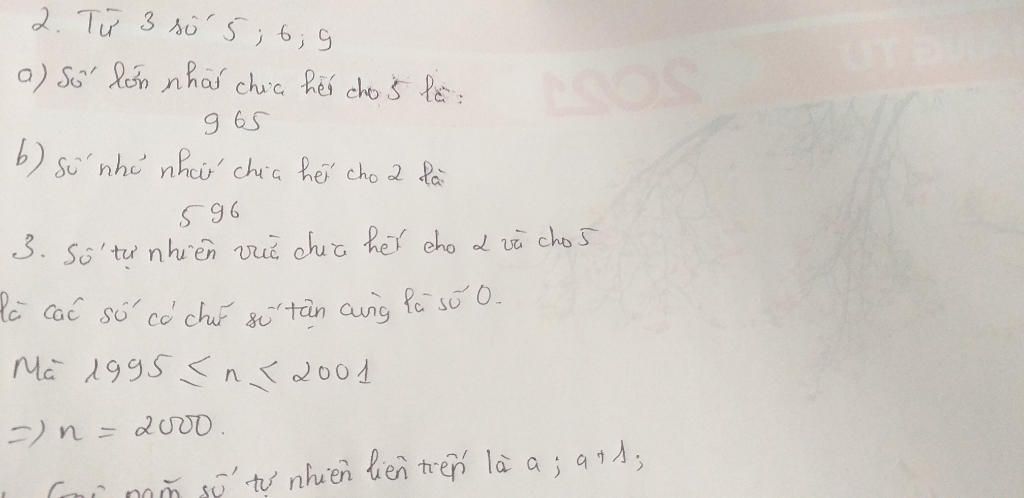 2. Từ 3 số 5; 6; 9
a) Số lớn nhất chia hết cho 5 là:
965
b) Số nhỏ nhất chia hết cho 2 là
596
3. Số tự nhiên vừa chia hết cho 2 và cho 5
là các số có chữ số tận cùng là số 0.
Mà 1995 ≤ n ≤ 2001
=> n = 2000.
năm số tự nhiên liên tiếp là a; a+1;
2021